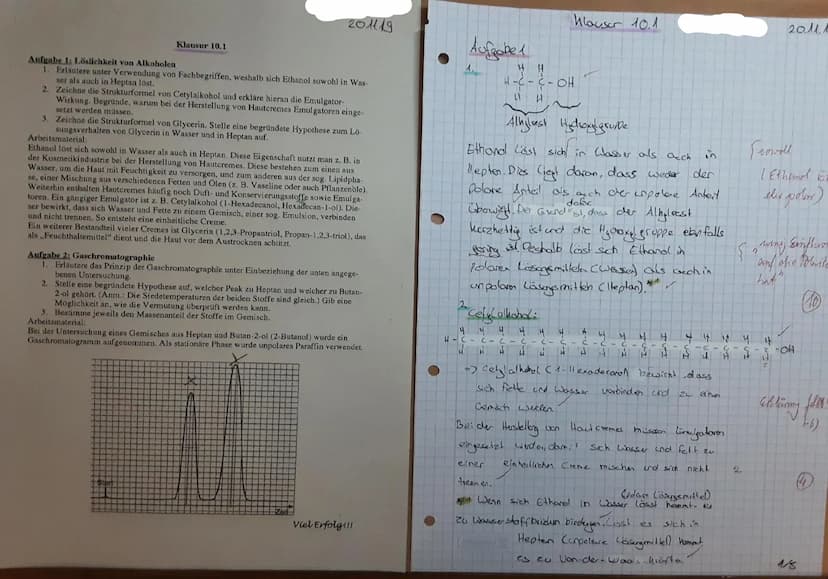 20.11.19
Klausur 10.1
Aufgabe 1: Löslichkeit von Alkoholen
1. Erläutere unter Verwendung von Fachbegriffen, weshalb sich Ethanol sowohl in Was-
ser als auch in Heptan löst.
2. Zeichne die Strukturformel von Cetylalkohol und erkläre hieran die Emulgator-
Wirkung. Begründe, warum bei der Herstellung von Hautcremes Emulgatoren einge-
setzt werden müssen.
3. Zeichne die Strukturformel von Glycerin. Stelle eine begründete Hypothese zum Lö-
sungsverhalten von Glycerin in Wasser und in Heptan auf.
Arbeitsmaterial:
Ethanol löst sich sowohl in Wasser als auch in Heptan. Diese Eigenschaft nutzt man z. B. in
der Kosmetikindustrie bei der Herstellung von Hautcremes. Diese bestehen zum einen aus
Wasser, um die Haut mit Feuchtigkeit zu versorgen, und zum anderen aus der sog. Lipidpha-
se, einer Mischung aus verschiedenen Fetten und Ölen (z. B. Vaseline oder auch Pflanzenöle).
Weiterhin enthalten Hautcremes häufig noch Duft- und Konservierungsstoffe sowie Emulga-
toren. Ein gängiger Emulgator ist z. B. Cetylalkohol (1-Hexadecanol, Hexadecan-1-ol). Die-
ser bewirkt, dass sich Wasser und Fette zu einem Gemisch, einer sog. Emulsion, verbinden
und nicht trennen. So entsteht eine einheitliche Creme.
Ein weiterer Bestandteil vieler Cremes ist Glycerin (1,2,3-Propantriol, Propan-1,2,3-triol), das
als „Feuchthaltemittel“ dient und die Haut vor dem Austrocknen schützt.
Aufgabe 2: Gaschromatographie
1. Erläutere das Prinzip der Gaschromatographie unter Einbeziehung der unten angege-
benen Untersuchung.
2. Stelle eine begründete Hypothese auf, welcher Peak zu Heptan und welcher zu Butan-
2-ol gehört. (Anm.: Die Siedetemperaturen der beiden Stoffe sind gleich.) Gib eine
Möglichkeit an, wie die Vermutung überprüft werden kann.
3. Bestimme jeweils den Massenanteil der Stoffe im Gemisch.
Arbeitsmaterial:
Bei der Untersuchung eines Gemisches aus Heptan und Butan-2-ol (2-Butanol) wurde ein
Gaschromatogramm aufgenommen. Als stationäre Phase wurde unpolares Paraffin verwendet.
X Y
Start
Zeit
Viel Erfolg!!!
Klausur 10.1
20.11.
Aufgabe 1
1.
H H
H-C-C-OH
H H
Alkylrest Hydroxylgruppe
Ethanol löst sich in Wasser als auch in
Hepten. Dies liegt daran, dass weder der
Polare Anteil als auch der unpolare Anteil
überwiegt. Der Grund dafür ist, dass der Alkylrest
Kurzkettig ist und die Hydroxylgruppe ebenfalls
gering ist. Deshalb löst sich Ethanol in
Polaren Lösungsmitteln (Wasser) als auch in
unpolaren Lösungsmitteln (Heptan).
sowohl
(Ethanol
eher polar)
10
2.
Cetylalkohol:
H H H H H H H H H H H H H H H H
H-C-C-C-C-C-C-C-C-C-C-C-C-C-C-C-C-OH
H H H H H H H H H H H H H H H H
=> Cetylalkohol (1-Hexadecanol) bewirkt, dass
sich Fette und Wasser verbinden und zu einem
Gemisch werden.
Erklärung
Bei der Herstellung von Hautcremes müssen Emulgatoren
eingesetzt werden, damit sich Wasser und Fett zu
einer einheitlichen Creme mischen und sich nicht
trennen.
4
(polares Lösungsmittel)
Wenn sich Ethanol in Wasser löst kommt es
zu Wasserstoffbrückenbindungen. Löst es sich in
Heptan (unpolares Lösungsmittel) kommt
es zu Van-der-Waals-Kräften
1/8